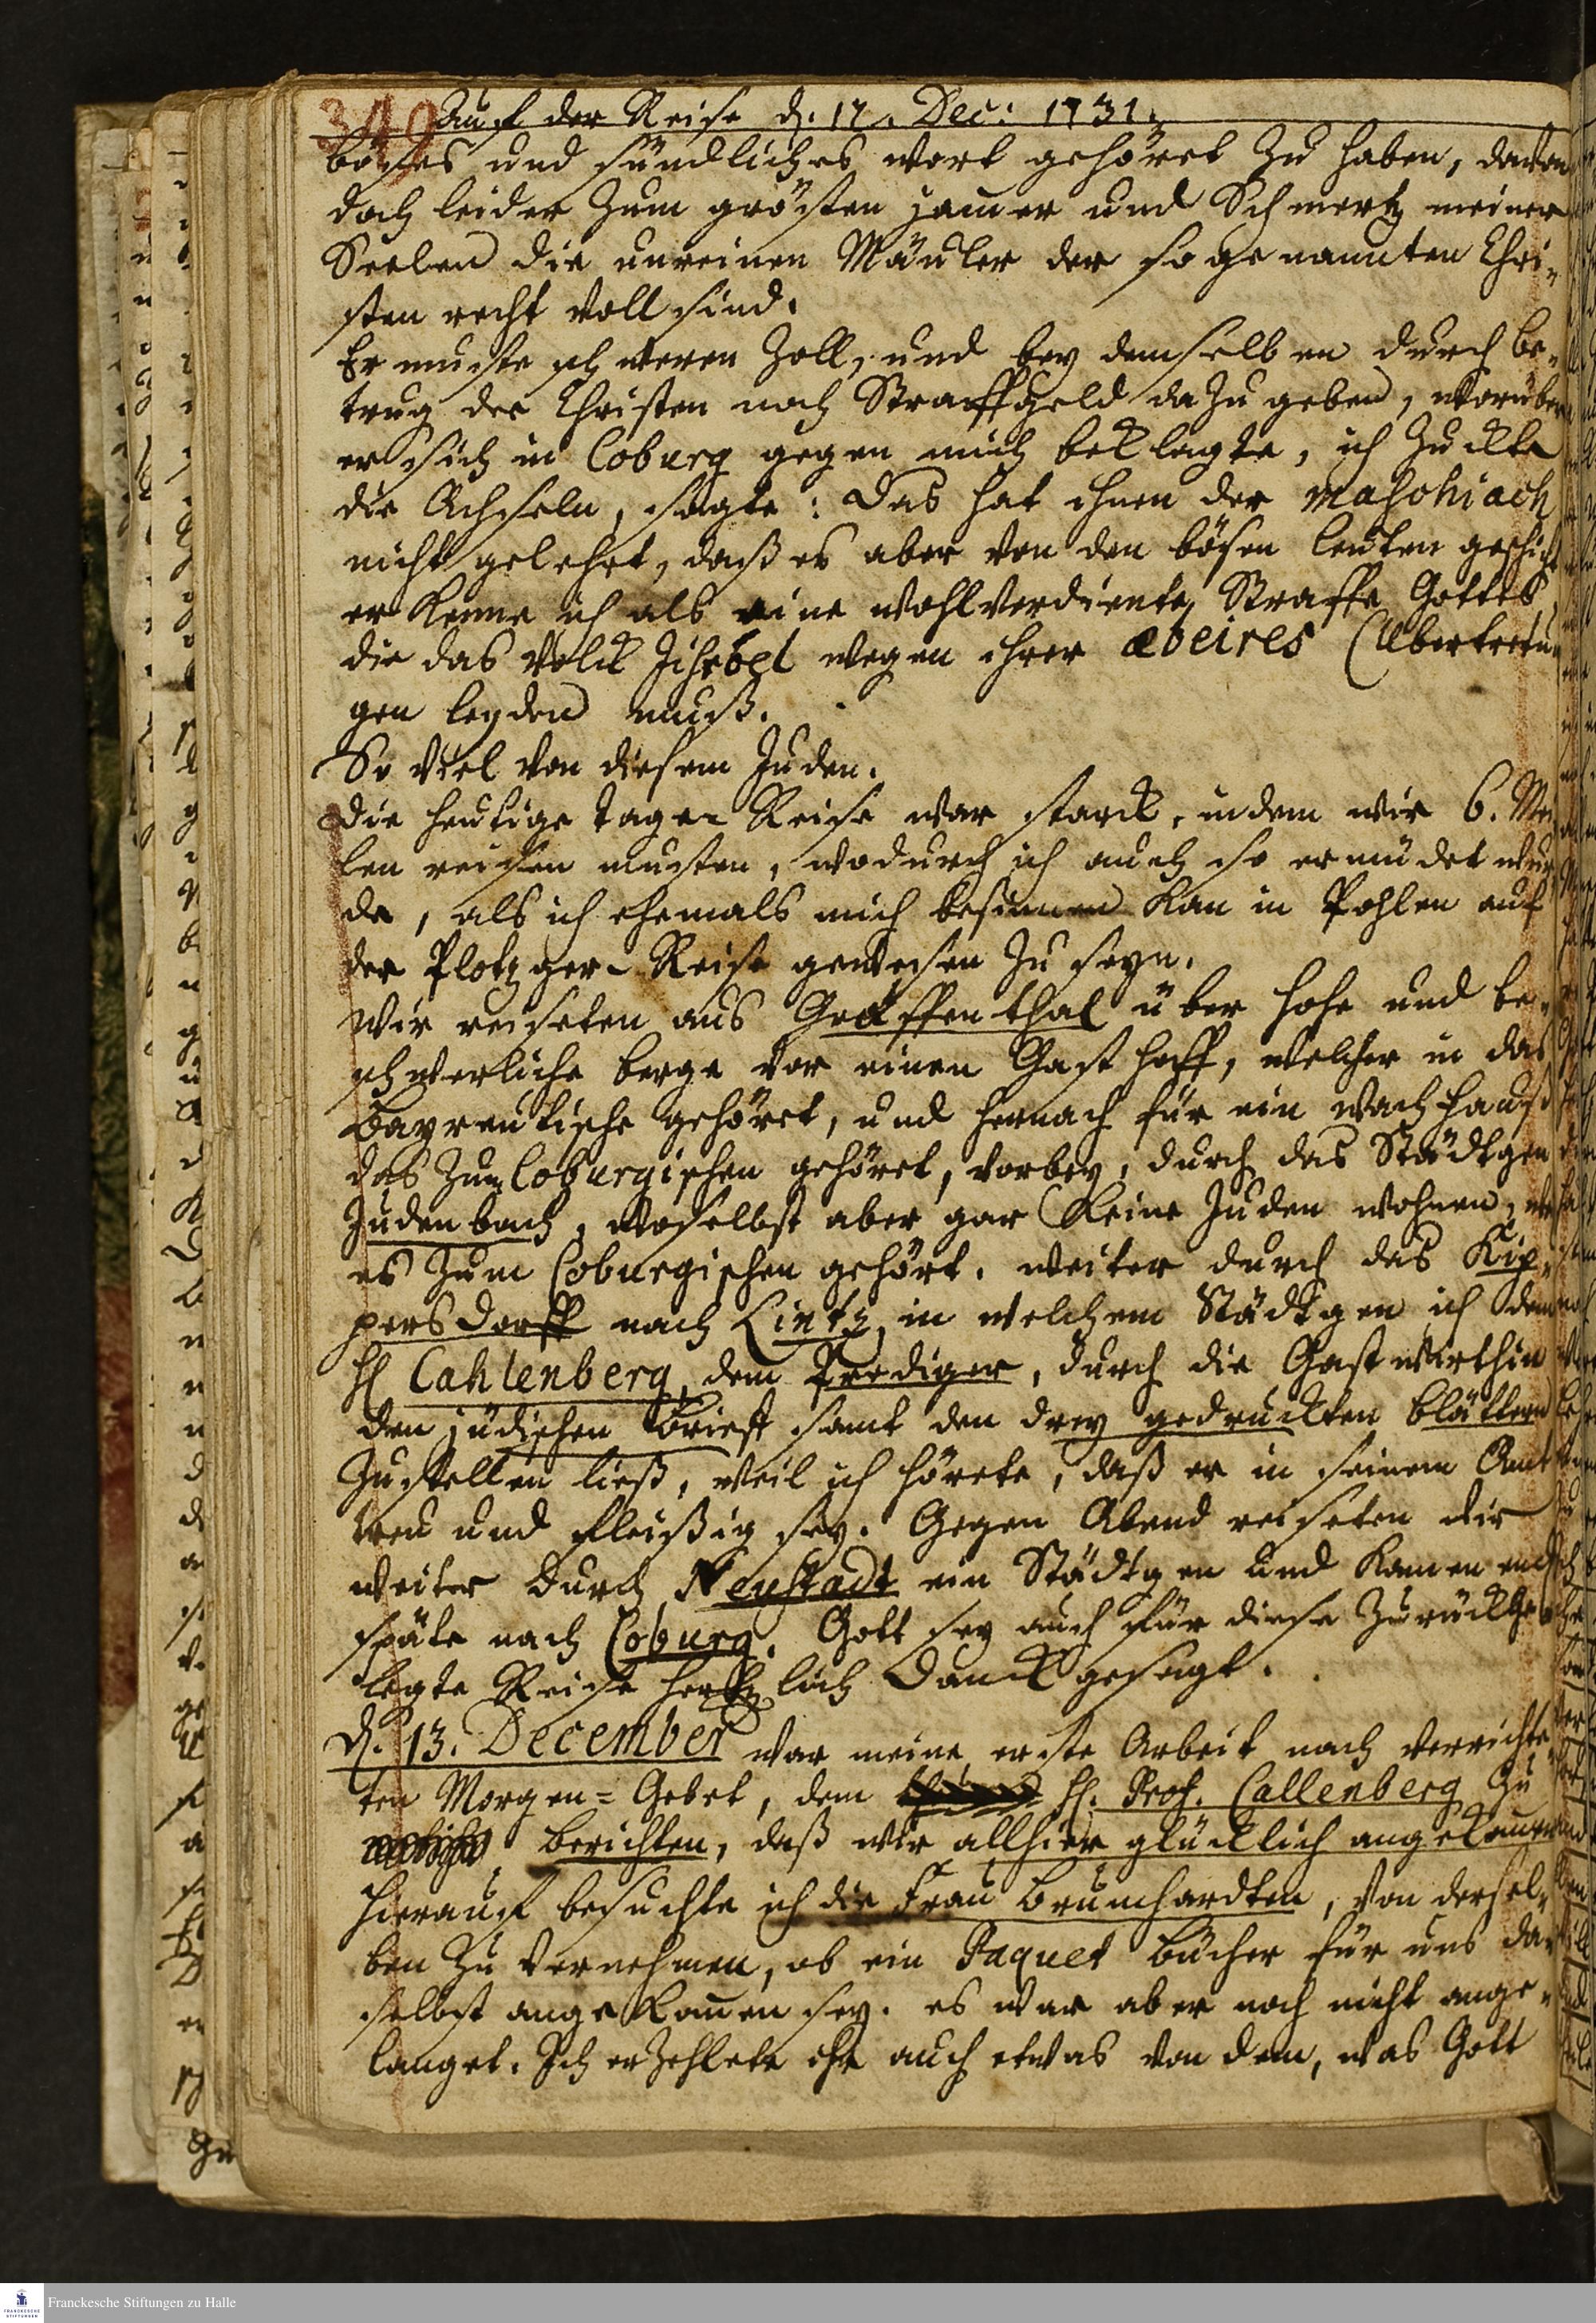 340
Auf der Reise d. 12. Dec: 1731.
böses und sündliches wort gehöret zu haben, davon
doch leider zum grösten jam̄er und Schmertz meiner
Seelen die unreinen Mäuler der so genannten Chri-
sten recht voll sind.
Er muste schweren Zoll, und bey demselben durch be-
trug der Christen noch Straffgeld dazu geben, worüber
er sich in Coburg gegen mich beklagte, ich zuckte
die Achseln, sagte: Das hat ihnen der Maschiach
nicht gelehrt, daß es aber von den bösen leuten geschicht
erkenne ich als eine wohlverdiente Straffe Gottes,
die das Volck Jisroel wegen ihrer aveires (Ubertretun-
gen leyden muß.
So viel von diesem Juden.
Die heutige tages Reise war starck, indem wir 6. Mei-
len reisen musten, wodurch ich auch so ermüdet wur-
de, als ich ehemals mich besinnen kan in Pohlen auf
der Plotzger-Reise gewesen zu seyn.
Wir reiseten aus Gräffenthal über hohe und be-
schwerliche berge vor einen Gasthoff, welcher in das
Bayreutische gehöret, und hernach für ein wachhauß
das zum Coburgischen gehöret, vorbey, durch das Städtgen
Judenbach, woselbst aber gar keine Juden wohnen,
es zum Coburgischen gehört. weiter durch das Kip-
persdorff nach Lintz, in welchem Städtgen ich dem
H. Cahlenberg, dem Prediger, durch die Gastwirthin
den jüdischen brieff samt den drey gedruckten blättern
zustellen ließ, weil ich hörete, daß er in seinem Amt
treu und fleißig sey. Gegen Abend reiseten wir
weiter durch Neystadt ein Städtgen und kamen endl.
späte nach Coburg. Gott sey auch für diese zurückge-
legte Reise hertzlich Danck gesagt.
d. 13. December war meine erste Arbeit nach verrichte-
ten Morgen-Gebet, dem H. Prof. Callenberg zu
berichten, daß wir allhier glücklich angekommen
Hierauf besuchte ich die Frau Brumhardten, von dersel-
ben zu vernehmen, ob ein Paquet bücher für uns da-
selbst angekom̄en sey. es war aber noch nicht ange-
langet. Ich erzehlete ihr auch etwas von dem, was Gott
FRANCKESCHE STIFTUNGEN
Franckesche Stiftungen zu Halle